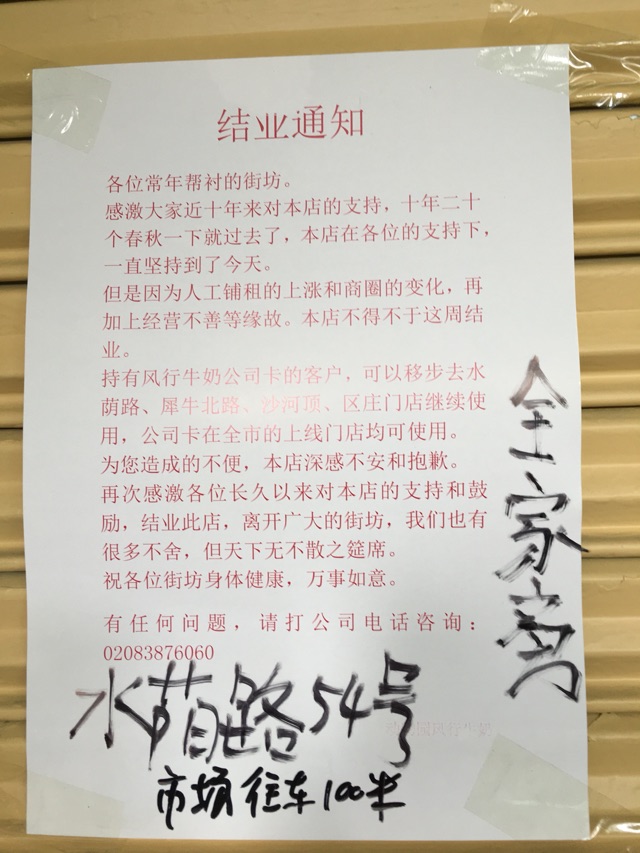 结业通知
各位常年帮衬的街坊。
感激大家近十年来对本店的支持，十年二十
个春秋一下就过去了，本店在各位的支持下，
一直坚持到了今天。
但是因为人工铺租的上涨和商圈的变化，再
加上经营不善等缘故。本店不得不于这周结
业。
持有风行牛奶公司卡的客户，可以移步去水
荫路、犀牛北路、沙河顶、区庄门店继续使
用，公司卡在全市的上线门店均可使用。
为您造成的不便，本店深感不安和抱歉。
再次感激各位长久以来对本店的支持和鼓
励，结业此店，离开广大的街坊，我们也有
很多不舍，但天下无不散之筵席。
祝各位街坊身体健康，万事如意。
有任何问题，请打公司电话咨询：
02083876060
风行牛奶
水荫路54号
市场往东100米
全家旁